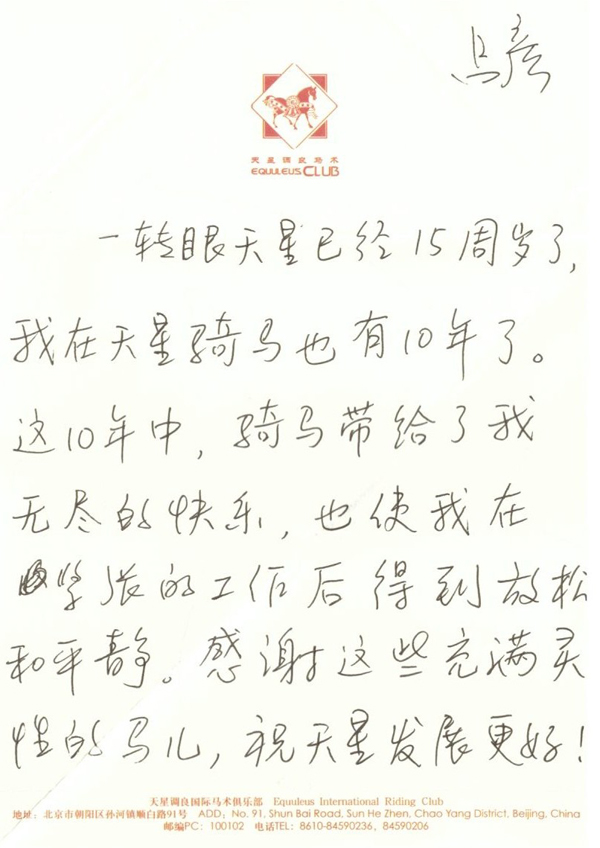 马彦
天星调良马术
EQUULEUS CLUB
一转眼天星已经15周岁了,
我在天星骑马也有10年了。
这10年中,骑马带给了我
无尽的快乐,也使我在
紧张的工作后得到放松
和平静。感谢这些充满灵
性的马儿,祝天星发展更好!
天星调良国际马术俱乐部 Equuleus International Riding Club
地址:北京市朝阳区孙河镇顺白路91号 ADD: No. 91, Shun Bai Road, Sun He Zhen, Chao Yang District, Beijing, China
邮编PC: 100102 电话TEL: 8610-84590236, 84590206